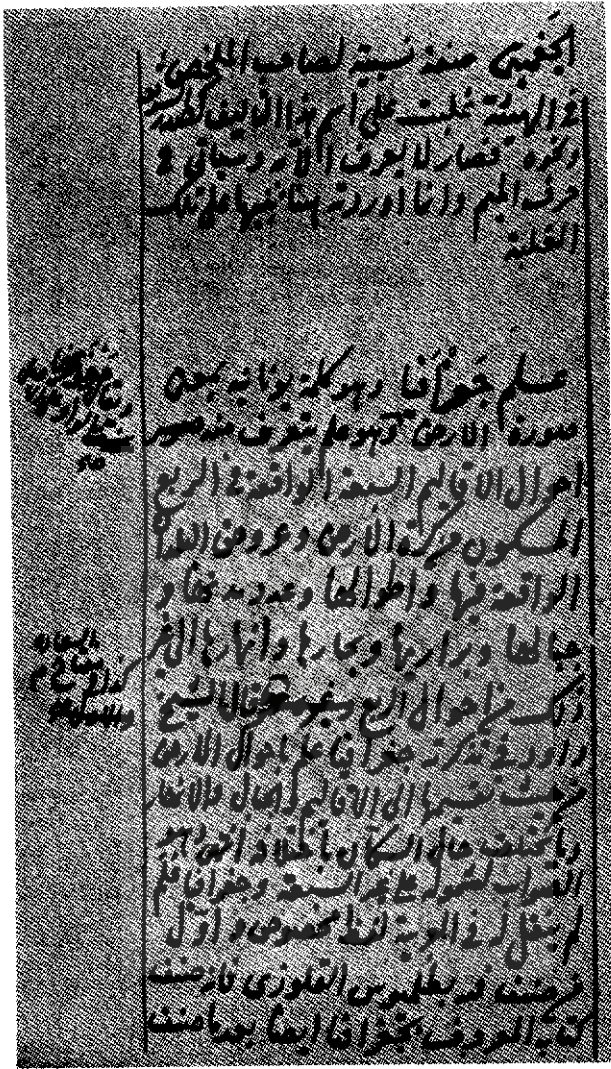 الجغميني صفة نسبية لصاحب الملخص
في الهيئة غلبت على اسم هذا التأليف لظهور
ونحوه فصار لا يعرف الا به وسيأتي في
حرف الميم وانما اوردته ههنا تنبيها على تلك
الغلبة
علم جغرافيا وهو كلمة يونانية بمعنى
صورة الارض وهو علم يتعرف منه
احوال الاقاليم السبعة الواقعة في الربع
المسكون من كرة الارض وعروض البلدان
الواقعة فيها واطوالها وعدد مدنها و
جبالها وبراريها وبحارها وانهارها الى غير
ذلك من احوال الربع قال الشيخ
داود في تذكرته جغرافيا علم باحوال الارض
من حيث تقسيمها الى الاقاليم والجبال والانهار
وما يختلف حال السكان باختلافه انتهى وهو
الصواب لشموله على غير السبعة وجغرافيا علم
لم ينقل له في العربية لفظ مخصوص و اول
من صنف فيه بطلميوس القلوزي فانه صنف
كتابه المعروف بجغرافيا ايضا بعدما صنف